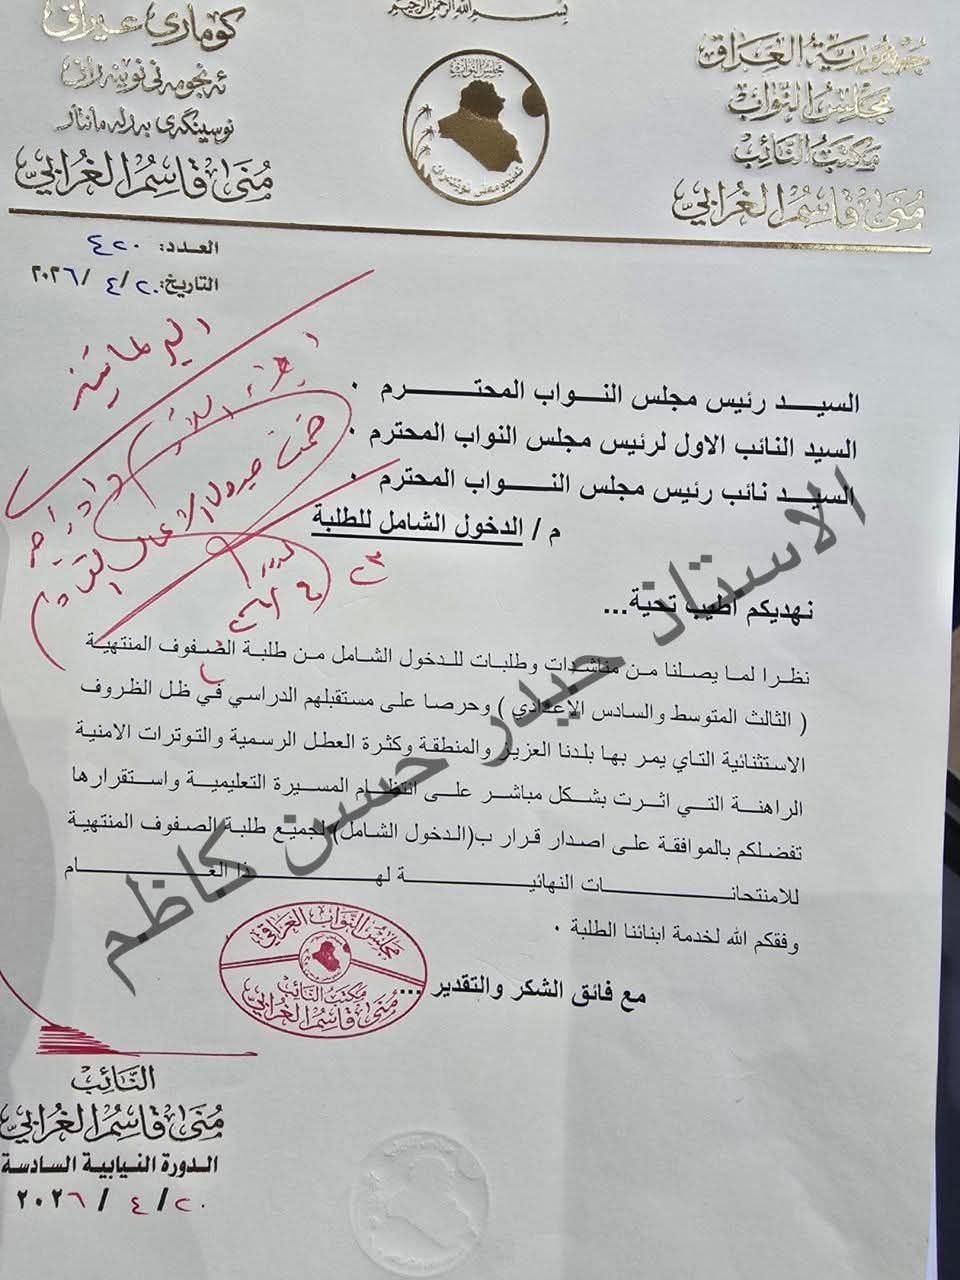 بسم الله الرحمن الرحيم
جمهورية العراق
مجلس النواب
مكتب النائب
منى قاسم الغرابي
كوماری عیراق
ئەنجومەنی نوینەرانی
نوسینگەی پەرلەمانتار
منى قاسم الغرابي
مجلس النواب
العدد: ٤٢٠
التاريخ: ٢٠/ ٤/ ٢٠٢٦
السيـــد رئيس مجلس النـــواب المحتـــرم ٠
السيد النائب الاول لرئيس مجلس النواب المحترم ٠
السيـــد نائب رئيس مجلس النـــواب المحترم ٠
م / الدخول الشامل للطلبة
نهديكم اطيب تحية...
نظرا لما يصلنا من مناشدات وطلبات للدخول الشامل من طلبة الصفوف المنتهية
( الثالث المتوسط والسادس الإعدادي ) وحرصا على مستقبلهم الدراسي في ظل الظروف
الاستثنائية التاي يمر بها بلدنا العزيز والمنطقة وكثرة العطل الرسمية والتوترات الامنية
الراهنة التي اثرت بشكل مباشر على انتظام المسيرة التعليمية واستقرارها
تفضلكم بالموافقة على اصدار قرار ب(الدخول الشامل) لجميع طلبة الصفوف المنتهية
للامنتحانـــات النهائيـــة لهـــذا العـــام
وفقكم الله لخدمة ابنائنا الطلبة ٠
مع فائق الشكر والتقدير ...
مجلس النواب العراقي
مكتب النائب
منى قاسم الغرابي
النائب
منى قاسم الغرابي
الدورة النيابية السادسة
٢٠/ ٤ / ٢٠٢٦
الاستاذ حيدر حسن كاظم